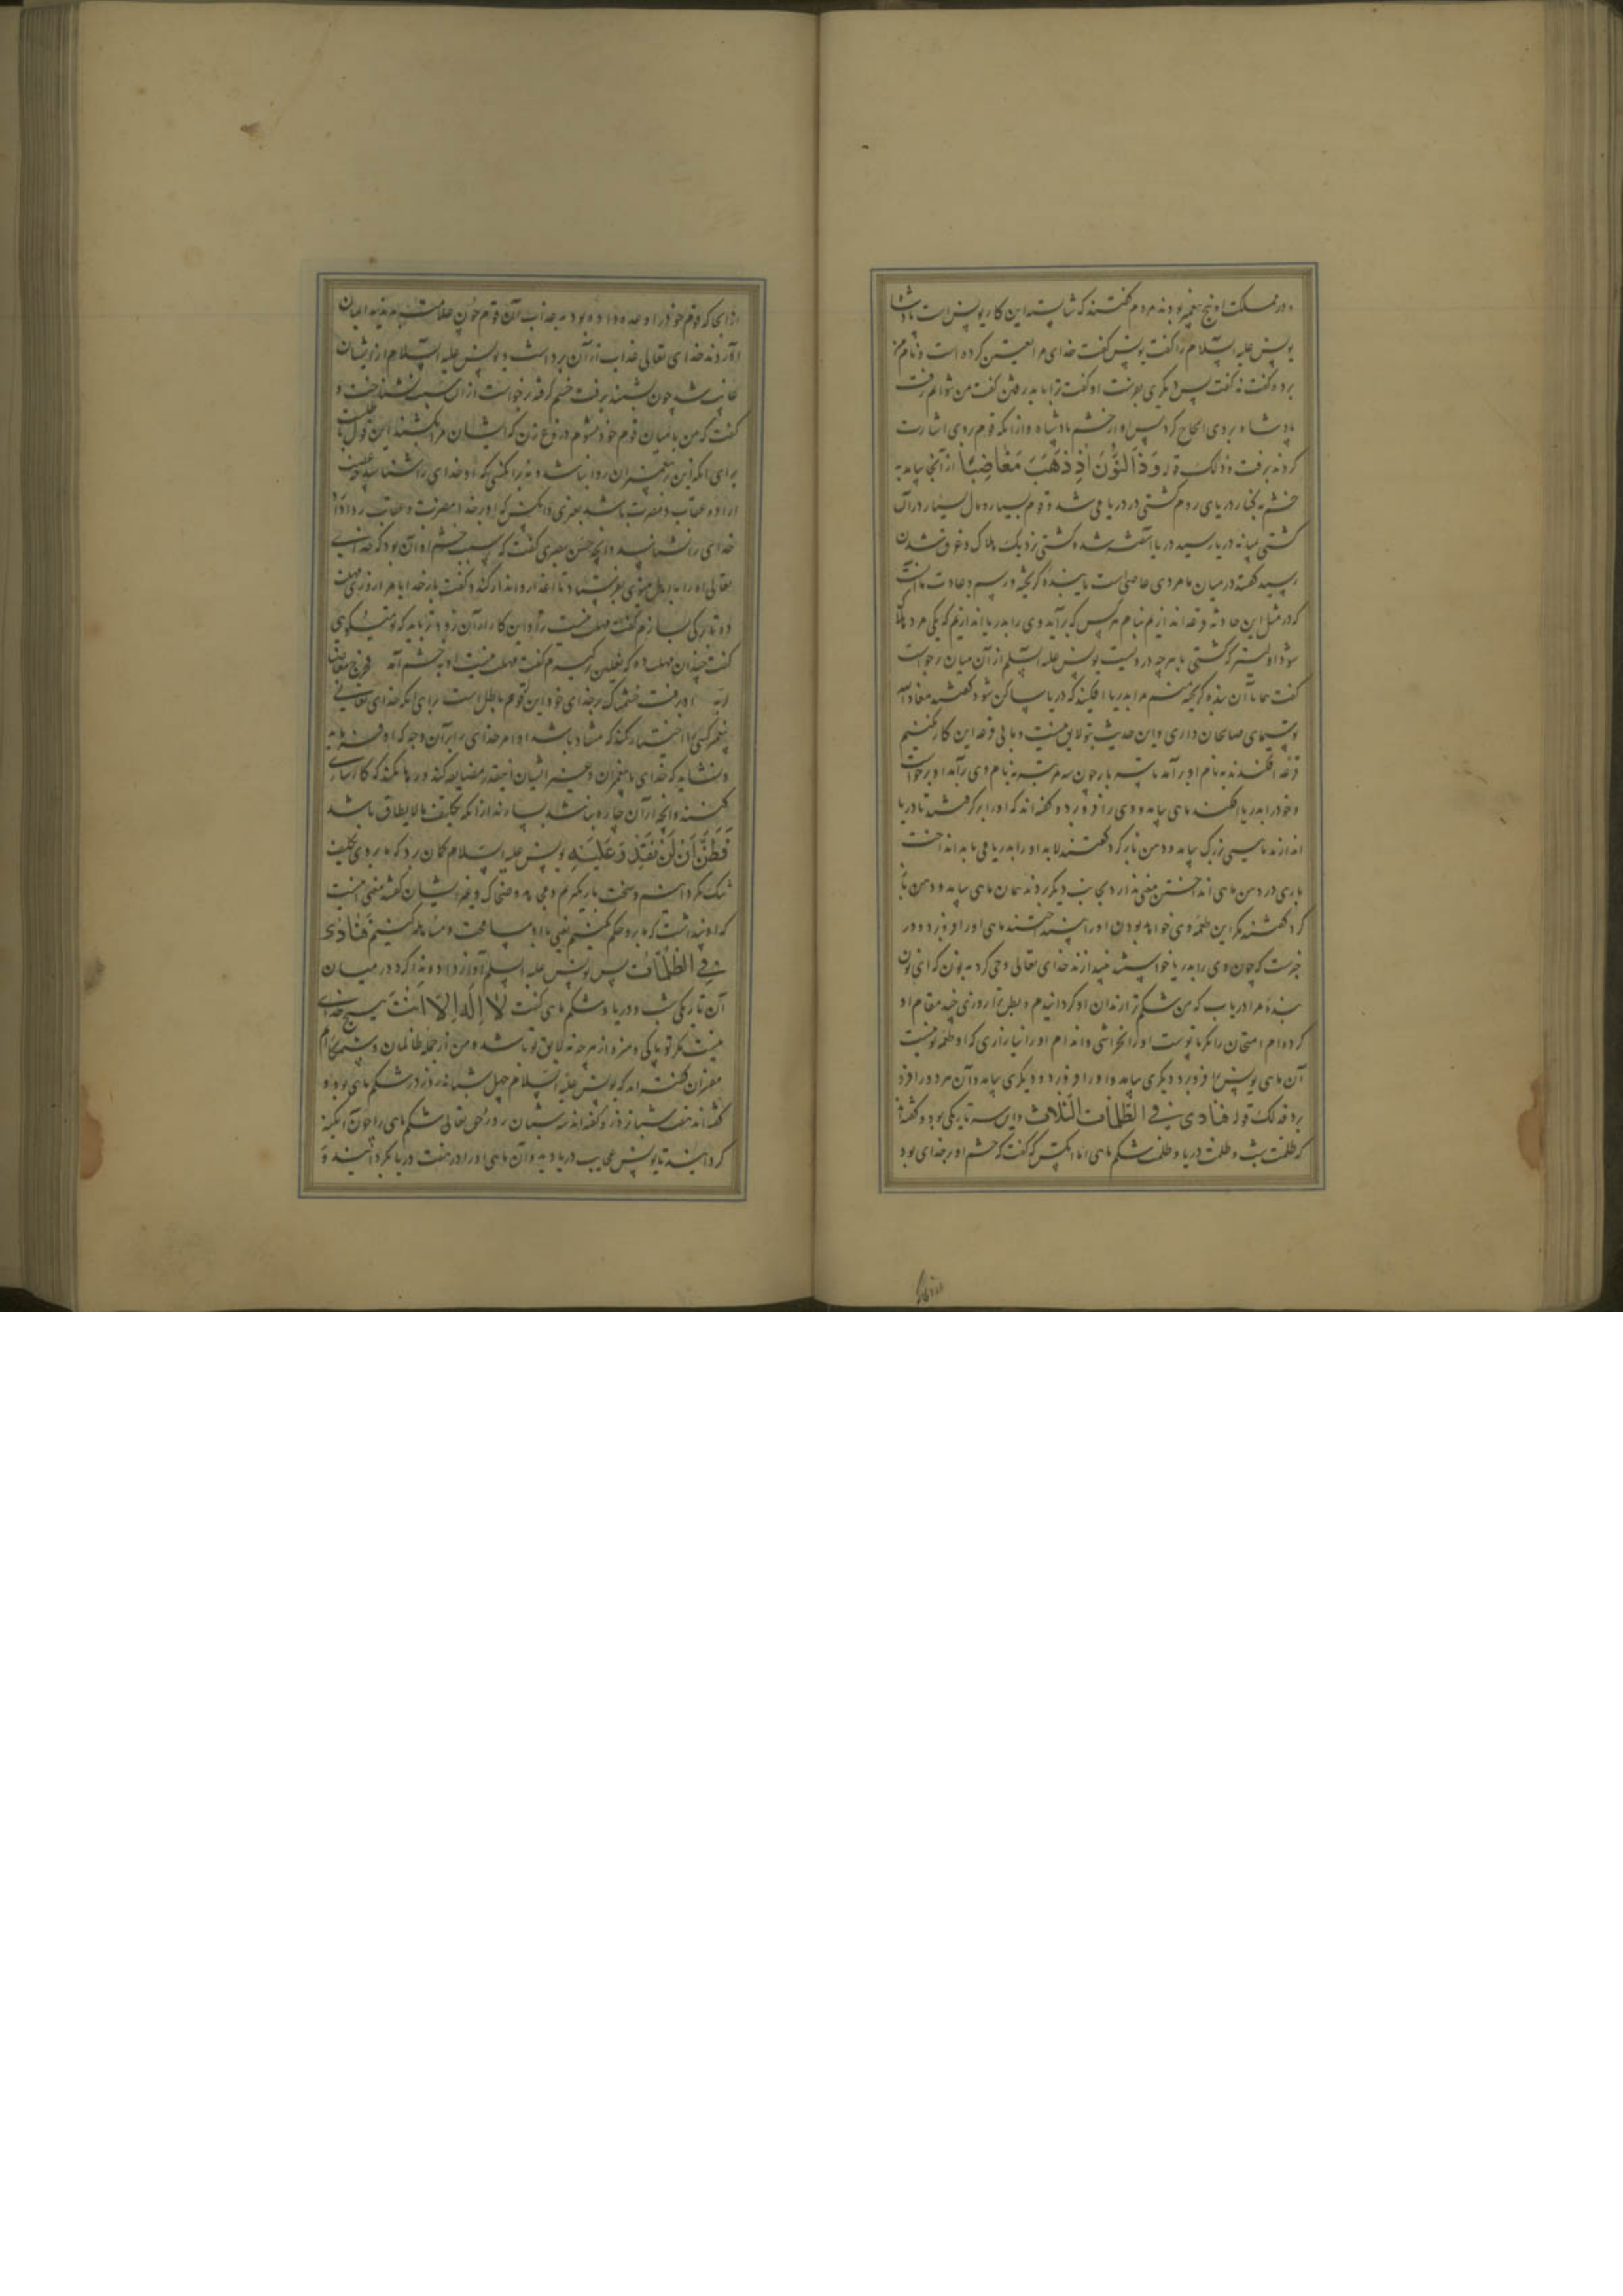 و در مملکت او پنج پیغمبر بودند مردم گفتند که شایسته این کار یونس است پادشاه
یونس علیه السلام را گفت یونس گفت خدای مرا تعیین کرده است و نام من
برده گفت نه گفت پس دیگری بفرست او گفت ترا باید رفتن گفت من نتوانم رفت
پادشاه بر وی الحاح کرد پس او از خشم پادشاه و از آنکه قوم بروی اشارت
کردند برفت و ذلک قوله وَذَا النُّونِ إِذْ ذَهَبَ مُغَاضِبًا از آنجا بیامد به
خشم به کنار دریای روم کشتی در دریا می شد و قوم بسیار و مال بسیار در آن
کشتی میانه دریا رسید دریا آشفته شد و کشتی نزدیک هلاک و غرق شدن
رسید گفتند در میان ما مردی عاصی است یا بنده گریخته و رسم و عادت ما آنست
که در مثل این حادثه قرعه اندازیم بنام هر کس که برآید وی را بدریا اندازیم که یکی مرد هلاک
شود اولیتر که کشتی با هر چه دروست یونس علیه السلم از آن میان برخواست
گفت همانا آن بنده گریخته منم مرا بدریا افکنید که دریا ساکن شود گفتند معاذ الله
تو سیمای صالحان داری و این حدیث بتو لایق نیست و ما بی قرعه این کار نکنیم
قرعه افکندند بنام او برآمد تا سه بار چون سه مرتبه بنام وی برآمد او برخواست
و خود را بدریا افکند ماهی بیامد و وی را فرو برد و گفته اند که او را برگرفتند تا در دریا
اندازند ماهیی بزرگ بیامد و دهن باز کرد گفتند لابد او را بدریا می باید انداخت
باری در دهن ماهی انداختن معنی ندارد بجانب دیگر بردند همان ماهی بیامد و دهن باز
کرد گفتند مگر این طعمه وی خواهد بودن او را بینداختند ماهی او را فرو برد و در
خبرست که چون وی را بدریا خواستند بیندازند خدای تعالی وحی کرد به نون که ای نون
بنده مرا دریاب که من شکم ترا زندان او گردانیدم و بطن ترا روزی چند مقام او
کرده ام امتحان را نگر تا پوست او را نخراشی و اندام او را نیازاری که او طعمه تو نیست
آن ماهی یونس را فرو برد دیگری بیامد و او را فرو برد و دیگری بیامد و آن هر دو را فرو
برد فذلک قوله فنادی فی الظلمات الثلاث و این سه تاریکی بود و گفته اند
که ظلمت شب و ظلمت دریا و ظلمت شکم ماهی اما آنکس که گفت که خشم او بر خدای بود
از انجا که قوم خود را وعده داده بود به عذاب آن قوم چون علامت بدیدند ایمان
آوردند خدای تعالی عذاب از آن برداشت و یونس علیه السلام از ایشان
غایب شد چون بشنید برفت خشم گرفته برخواست از آن سبب
گفت که من با میان قوم خود نشوم دروغ زن که ایشان مرا بکشند این قول باطلست
برای آنکه این بر پیغمبران روا نباشد و نه بر آنکسی که او خدای را شناسد چه غضب
اراده عقاب و مضرت باشد بغیری و آنکس که او بر خدا مضرت و عقاب روا دارد
خدای را نشناسد و آنچه حسن بصری گفت که سبب خشم او آن بود که خدای
تعالی او را به اهل نینوی بفرستاد تا اعذار و انذار کند و گفت بار خدایا مرا روزی مهلت
ده تا برگی بسازم گفت مهلت نیست ترا و این کار از آن زودتر باید که تو میگویی
گفت چندان مهلت ده که نعلین برگیرم گفت مهلت نیست او به خشم آمد فخرج مغاضبا
لربه او برفت خشمناک بر خدای خود این قول هم باطل است برای آنکه خدای تعالی
پیغمبر کسی را اختیار نکند که منقاد نباشد اوامر خدای را بر آن وجه که او فرماید
و نشاید که خدای با پیغمبران و غیر ایشان اینقدر مضایقه کند و رها نکند که کارسازی
کنند و آنچه از آن چاره نباشد بسازند از آنکه تکلیف ما لا یطاق باشد
فَظَنَّ أَنْ لَنْ نَقْدِرَ عَلَيْهِ یونس علیه السلام گمان برد که ما بر وی تکلیف
تنگ نکرداینم و سخت باز نگیریم و مجاهد و ضحاک و غیر ایشان گفتند معنی اینست
که او پنداشت که ما برو حکم نکنیم یعنی با او مسامحت و مساهله کنیم فَنَادَى
فِي الظُّلُمَاتِ پس یونس علیه السلم آواز داد و ندا کرد در میان
آن تاریکی شب و دریا و شکم ماهی گفت لَا إِلَهَ إِلَّا أَنْتَ هیچ خدای
نیست مگر تو پاکی و منزه از هر چه نه لایق تو باشد و من از جمله ظالمان و ستمکارانم
مفسران گفته اند که یونس علیه السلام چهل شبانه روز در شکم ماهی بود و
گفته اند هفت شبانه روز و گفته اند سه شبان روز حق تعالی شکم ماهی را چون آبگینه
گردانید تا یونس عجایب دریا دید و آن ماهی او را در هفت دریا بگردانید و